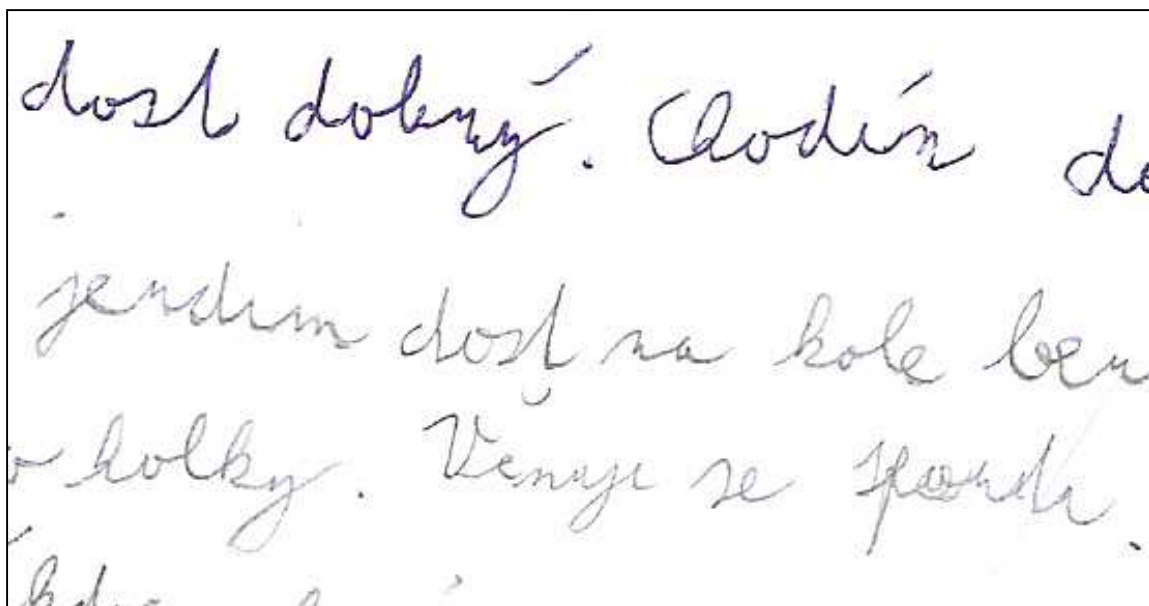 dost dobrý. Chodím do
jezdim dost na kole
holky. Věnuji se sportu.